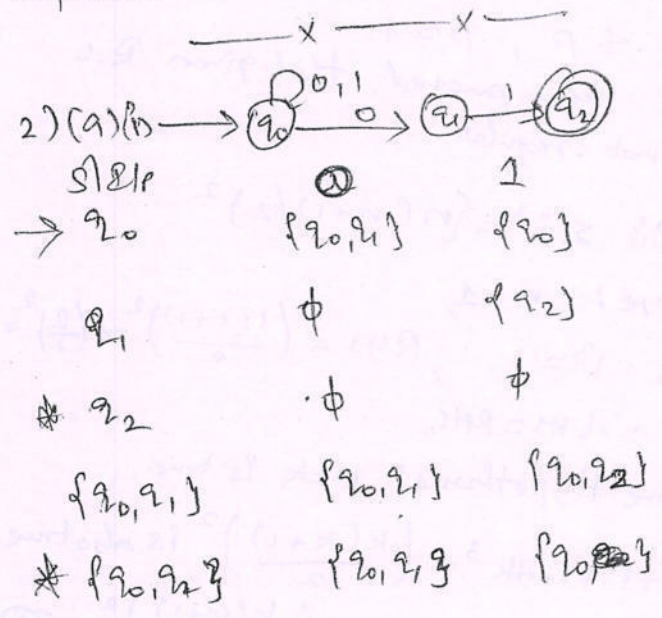 x x
2) (a) (i) → q0 0,1 0 q1 1 q2
S\Σ|P 0 1
→ q0 {q0,q1} {q0}
q1 ϕ {q2}
* q2 ϕ ϕ
{q0,q1} {q0,q1} {q0,q2}
* {q0,q2} {q0,q1} {q0}